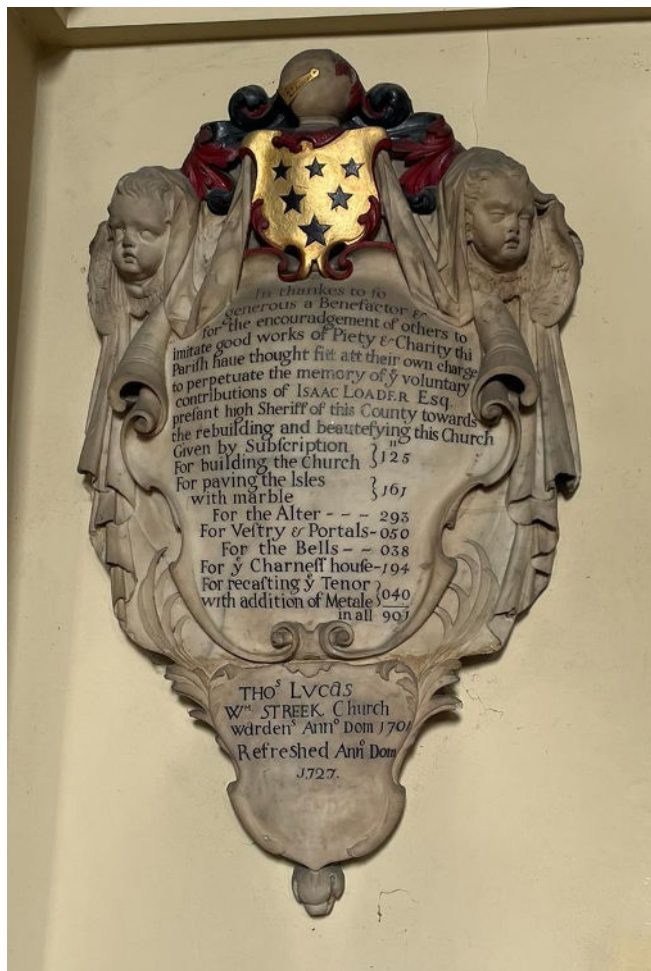 In thankes to ſo
generous a Benefactor &
for the encouradgement of others to
imitate good works of Piety & Charity thi
Pariſh haue thought fitt att their own charge
to perpetuate the memory of yͤ voluntary
contributions of ISAAC LOADER Esq.
preſant high Sheriff of this County towards
the rebuilding and beautefying this Church
Given by Subſcription
For building the Church } 125
For paving the Isles
with marble } 161
For the Alter - - - 293
For Veſtry & Portals - 050
For the Bells - - 038
For yͤ Charneſſ houſe - 194
For recaſting yͤ Tenor
with addition of Metale } 040
in all 901
THOˢ LVCas
Wᴹ STREEK Church
wardenˢ Annº Dom 1701
Refreshed Annº Dom
1727.